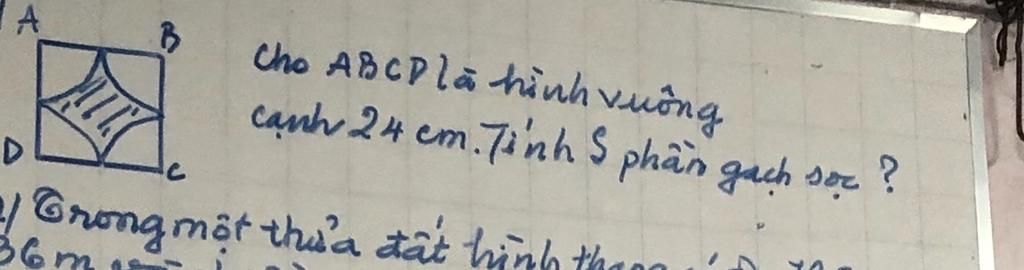 A
B
Cho ABCD là hình vuông
cạnh 24 cm. Tính S phần gạch sọc ?
D
C
2/ Trong một thửa đất hình thang
36m